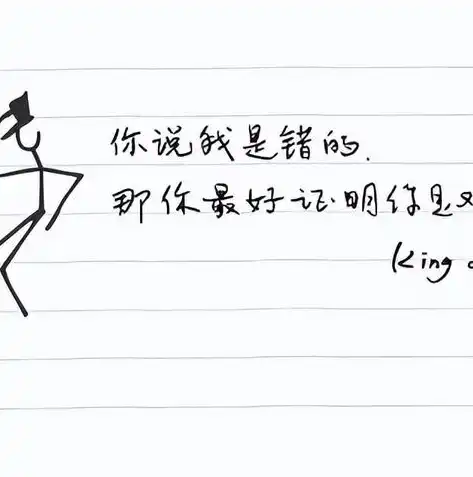 你说我是错的.
那你最好证明你是
King